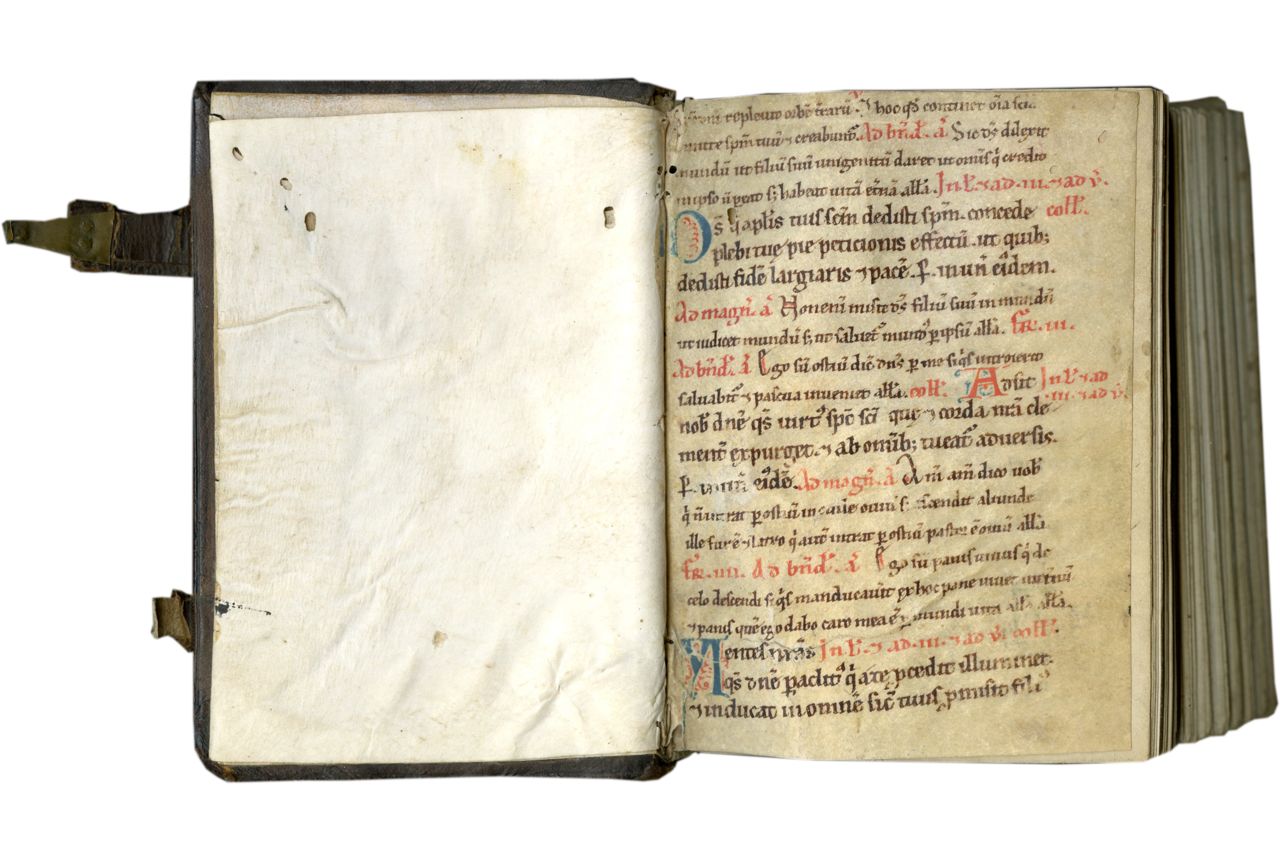 repleuit orbē t̄rarū. hoc qd continet oīa sci..
mitte spm̄ tuū ⁊ creabunt̄. Ad bn̄d. ā Sic ds̄ dilexit
mundū ut filiū suū unigenitū daret ut omnis qͥ credit
in ipso n̄ peat sꝫ habeat uitā etn̄ā alla. In .ł ⁊ ad .iii. ⁊ ad v̄.
Ds̄ qͥ aplis tuis scm̄ dedisti spm̄. concede coll.
plebi tuę pie peticionis effectū. ut quibꝫ
dedisti fidē largiaris ⁊ pacē. ꝑ. in un̄ eiͥdem.
Ad magn̄. ā Non enī misit ds̄ filiū suū in mundū
ut iudicet mundū sꝫ ut saluet̄ mundꝰ ꝑ ipsū alla. fr̄. iii.
Ad bn̄d. ā Ego sū ostiū dic̄ dns̄ ꝑ me siqͥs introierit
saluabit̄ ⁊ pascua inueniet alla. coll. Adsit In .ł ⁊ ad
.iii. ⁊ ad v̄.
nob̄ dn̄e qs̄ uirtꝰ spc̄ sci que ⁊ corda nr̄a cle
ment̄ expurget. ⁊ ab omībꝫ tueat̄ aduersis.
ꝑ. in un̄ eiͥdē. Ad magn̄. ā Am̄ am̄ dico uob̄
qͥ n̄ intrat ꝑ ostiū in ouile ouiū sꝫ ascendit aliunde
ille fur ē ⁊ latro qͥ autē intrat ꝑ ostiū pastor ē ouiū alla
fr̄. iiii. Ad bn̄d. ā Ego sū panis uiuus qͥ de
celo descendi siqͥs manducauīt ex hoc pane uiuet in etn̄ū
⁊ panis quē ego dabo caro mea ē ꝑ mundi uita alla alla.
Mentes nr̄as In .ł ⁊ ad .iii. ⁊ ad v̄. coll.
qs̄ dn̄e paclitꝰ qͥ a te ꝓcedit illuminet.
⁊ inducat in omnē sic̄ tuus ꝓmisit fili